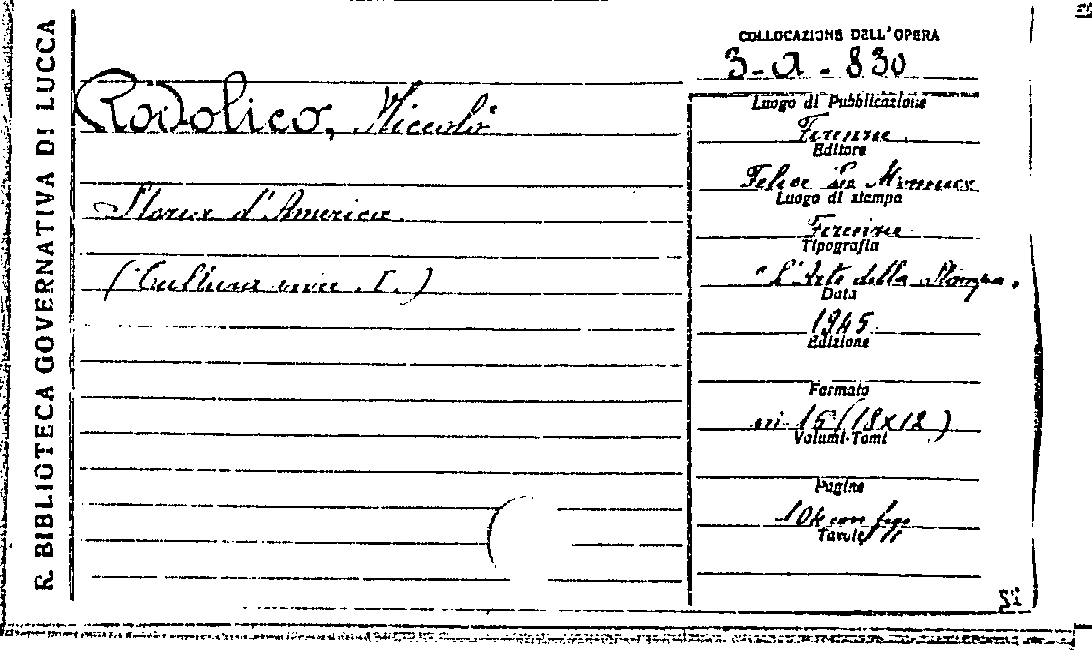 R. BIBLIOTECA GOVERNATIVA DI LUCCA
COLLOCAZIONE DELL'OPERA
3-a-830
Rodolico, Niccolò
Storia d'America
(Cultura viva I.)
Luogo di Pubblicazione
Firenze
Editore
Felice Le Monnier
Luogo di stampa
Firenze
Tipografia
"L'Arte della Stampa"
Data
1945
Edizione
Formato
in 16 (18x12)
Volumi-Tomi
Pagine
104 con figg
Tavole